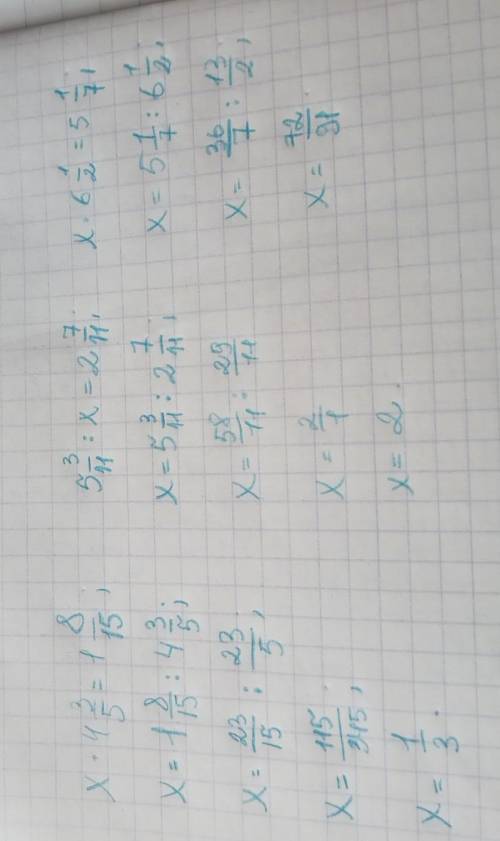 x · 4 3/5 = 1 8/15;
x = 1 8/15 : 4 3/5;
x = 23/15 : 23/5;
x = 115/345;
x = 1/3.
5 3/11 : x = 2 7/11;
x = 5 3/11 : 2 7/11;
x = 58/11 : 29/11
x = 2/1
x = 2.
x · 6 1/2 = 5 1/7;
x = 5 1/7 : 6 1/2;
x = 36/7 : 13/2;
x = 72/91